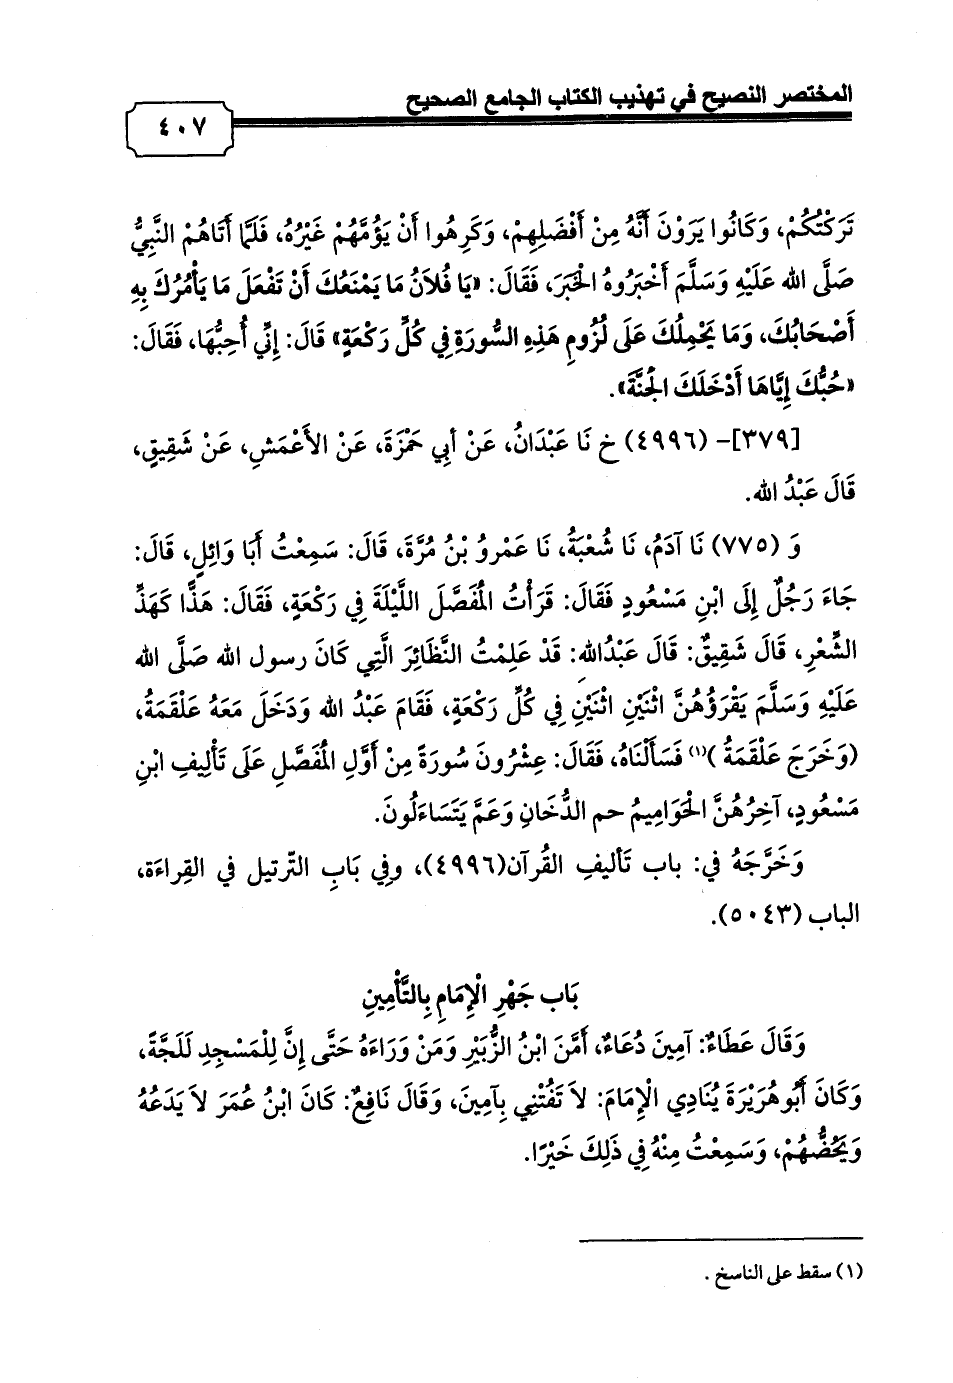 المختصر النصيح في تهذيب الكتاب الجامع الصحيح
٤٠٧
تَرَكْتُكُمْ، وَكَانُوا يَرَوْنَ أَنَّهُ مِنْ أَفْضَلِهِمْ، وَكَرِهُوا أَنْ يَؤُمَّهُمْ غَيْرُهُ، فَلَمَّا أَتَاهُمْ النَّبِيُّ
صَلَّى الله عَلَيْهِ وَسَلَّمَ أَخْبَرُوهُ الْخَبَرَ، فَقَالَ: «يَا فُلاَنُ مَا يَمْنَعُكَ أَنْ تَفْعَلَ مَا يَأْمُرُكَ بِهِ
أَصْحَابُكَ، وَمَا يَحْمِلُكَ عَلَى لُزُومِ هَذِهِ السُّورَةِ فِي كُلِّ رَكْعَةٍ» قَالَ: إِنِّي أُحِبُّهَا، فَقَالَ:
«حُبُّكَ إِيَّاهَا أَدْخَلَكَ الْجَنَّةَ».
[٣٧٩]- (٤٩٩٦) خ نَا عَبْدَانُ، عَنْ أَبِي حَمْزَةَ، عَنْ الأَعْمَشِ، عَنْ شَقِيقٍ،
قَالَ عَبْدُ الله.
وَ (٧٧٥) نَا آدَمُ، نَا شُعْبَةُ، نَا عَمْرُو بْنُ مُرَّةَ، قَالَ: سَمِعْتُ أَبَا وَائِلٍ، قَالَ:
جَاءَ رَجُلٌ إِلَى ابْنِ مَسْعُودٍ فَقَالَ: قَرَأْتُ الْمُفَصَّلَ اللَّيْلَةَ فِي رَكْعَةٍ، فَقَالَ: هَذًّا كَهَذِّ
الشِّعْرِ، قَالَ شَقِيقٌ: قَالَ عَبْدُالله: قَدْ عَلِمْتُ النَّظَائِرَ الَّتِي كَانَ رسول الله صَلَّى الله
عَلَيْهِ وَسَلَّمَ يَقْرَؤُهُنَّ اثْنَيْنِ اثْنَيْنِ فِي كُلِّ رَكْعَةٍ، فَقَامَ عَبْدُ الله وَدَخَلَ مَعَهُ عَلْقَمَةُ،
(وَخَرَجَ عَلْقَمَةُ )(١) فَسَأَلْنَاهُ، فَقَالَ: عِشْرُونَ سُورَةً مِنْ أَوَّلِ الْمُفَصَّلِ عَلَى تَأْلِيفِ ابْنِ
مَسْعُودٍ، آخِرُهُنَّ الْحَوَامِيمُ حم الدُّخَانِ وَعَمَّ يَتَسَاءَلُونَ.
وَخَرَّجَهُ فِي: باب تَأليفِ القُرآن(٤٩٩٦)، وفِي بَابِ التّرتيل في القِراءَة،
الباب (٥٠٤٣).
بَاب جَهْرِ الْإِمَامِ بِالتَّأْمِينِ
وَقَالَ عَطَاءٌ: آمِينَ دُعَاءٌ، أَمَّنَ ابْنُ الزُّبَيْرِ وَمَنْ وَرَاءَهُ حَتَّى إِنَّ لِلْمَسْجِدِ لَلَجَّةً،
وَكَانَ أَبُوهُرَيْرَةَ يُنَادِي الْإِمَامَ: لاَ تَفُتْنِي بِآمِينَ، وَقَالَ نَافِعٌ: كَانَ ابْنُ عُمَرَ لاَ يَدَعُهُ
وَيَحُضُّهُمْ، وَسَمِعْتُ مِنْهُ فِي ذَلِكَ خَيْرًا.
(١) سقط على الناسخ .